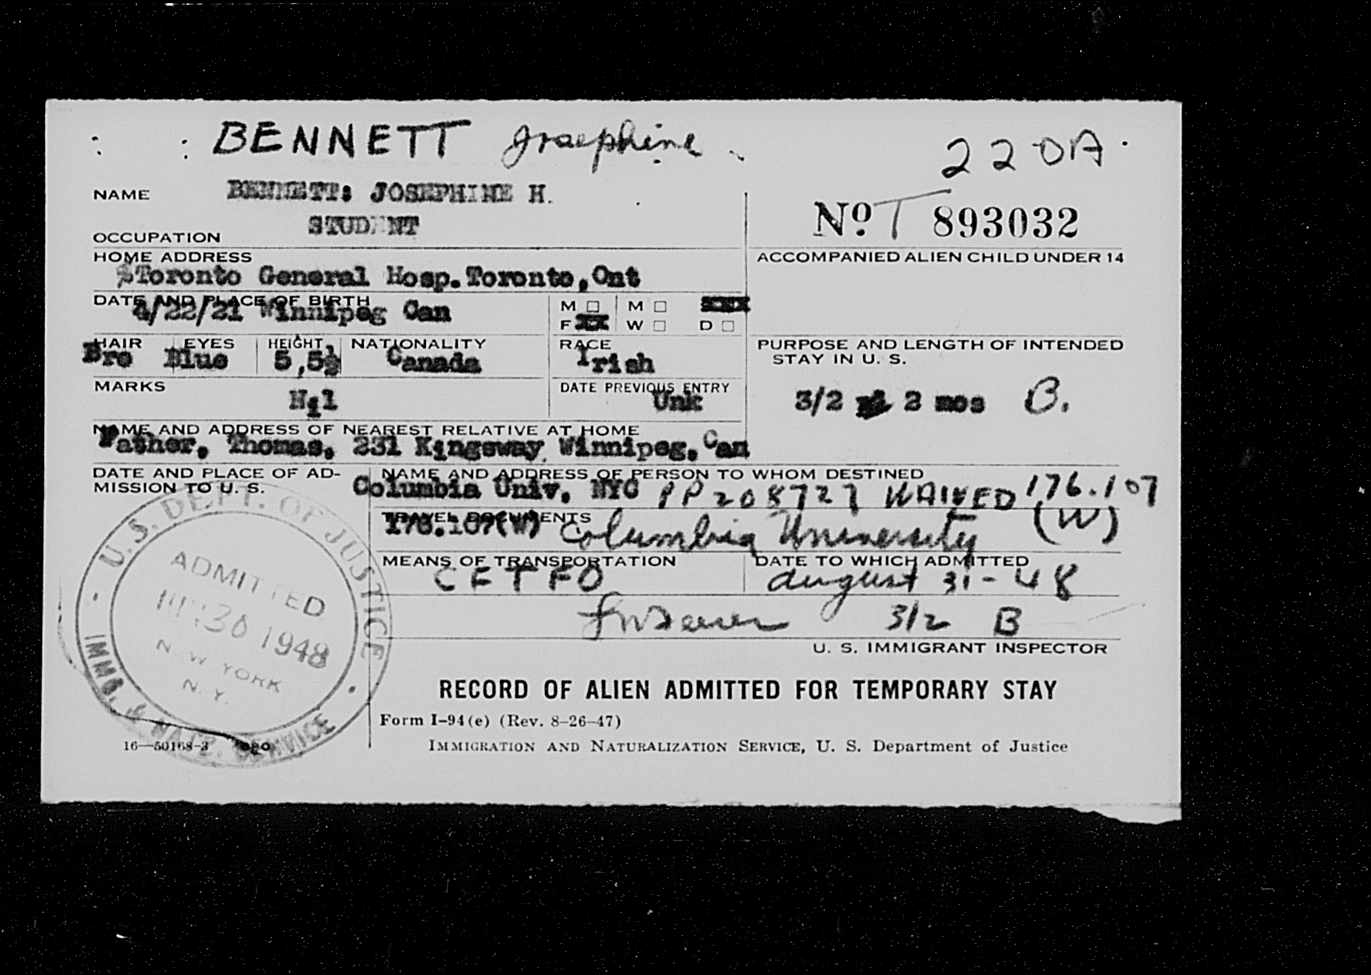 BENNETT Josephine
220A
NAME BENNETT: JOSEPHINE H.
No. T 893032
OCCUPATION STUDENT
HOME ADDRESS
Toronto General Hosp. Toronto, Ont
ACCOMPANIED ALIEN CHILD UNDER 14
DATE AND PLACE OF BIRTH
4/22/21 Winnipeg Can
M □ M □
F XX W □ D □
HAIR EYES HEIGHT NATIONALITY RACE
Bro Blue 5,5½ Canada Irish
PURPOSE AND LENGTH OF INTENDED
STAY IN U. S.
MARKS
Nil
DATE PREVIOUS ENTRY
Unk
3/2 2 mos B.
NAME AND ADDRESS OF NEAREST RELATIVE AT HOME
Father, Thomas, 231 Kingsway Winnipeg, Can
DATE AND PLACE OF AD-
MISSION TO U. S.
NAME AND ADDRESS OF PERSON TO WHOM DESTINED
Columbia Univ. NYC PP208727 WAIVED 176.107
(W)
TRAVEL DOCUMENTS
176.107(W) Columbia University
MEANS OF TRANSPORTATION
CFTFO
DATE TO WHICH ADMITTED
august 31-48
3/2 B
U. S. IMMIGRANT INSPECTOR
U.S. DEPT. OF JUSTICE
ADMITTED
30 1948
NEW YORK
N.Y.
IMMG. & NATZ. SERVICE
RECORD OF ALIEN ADMITTED FOR TEMPORARY STAY
Form I-94(e) (Rev. 8-26-47)
16—50168-3 GPO
IMMIGRATION AND NATURALIZATION SERVICE, U. S. Department of Justice